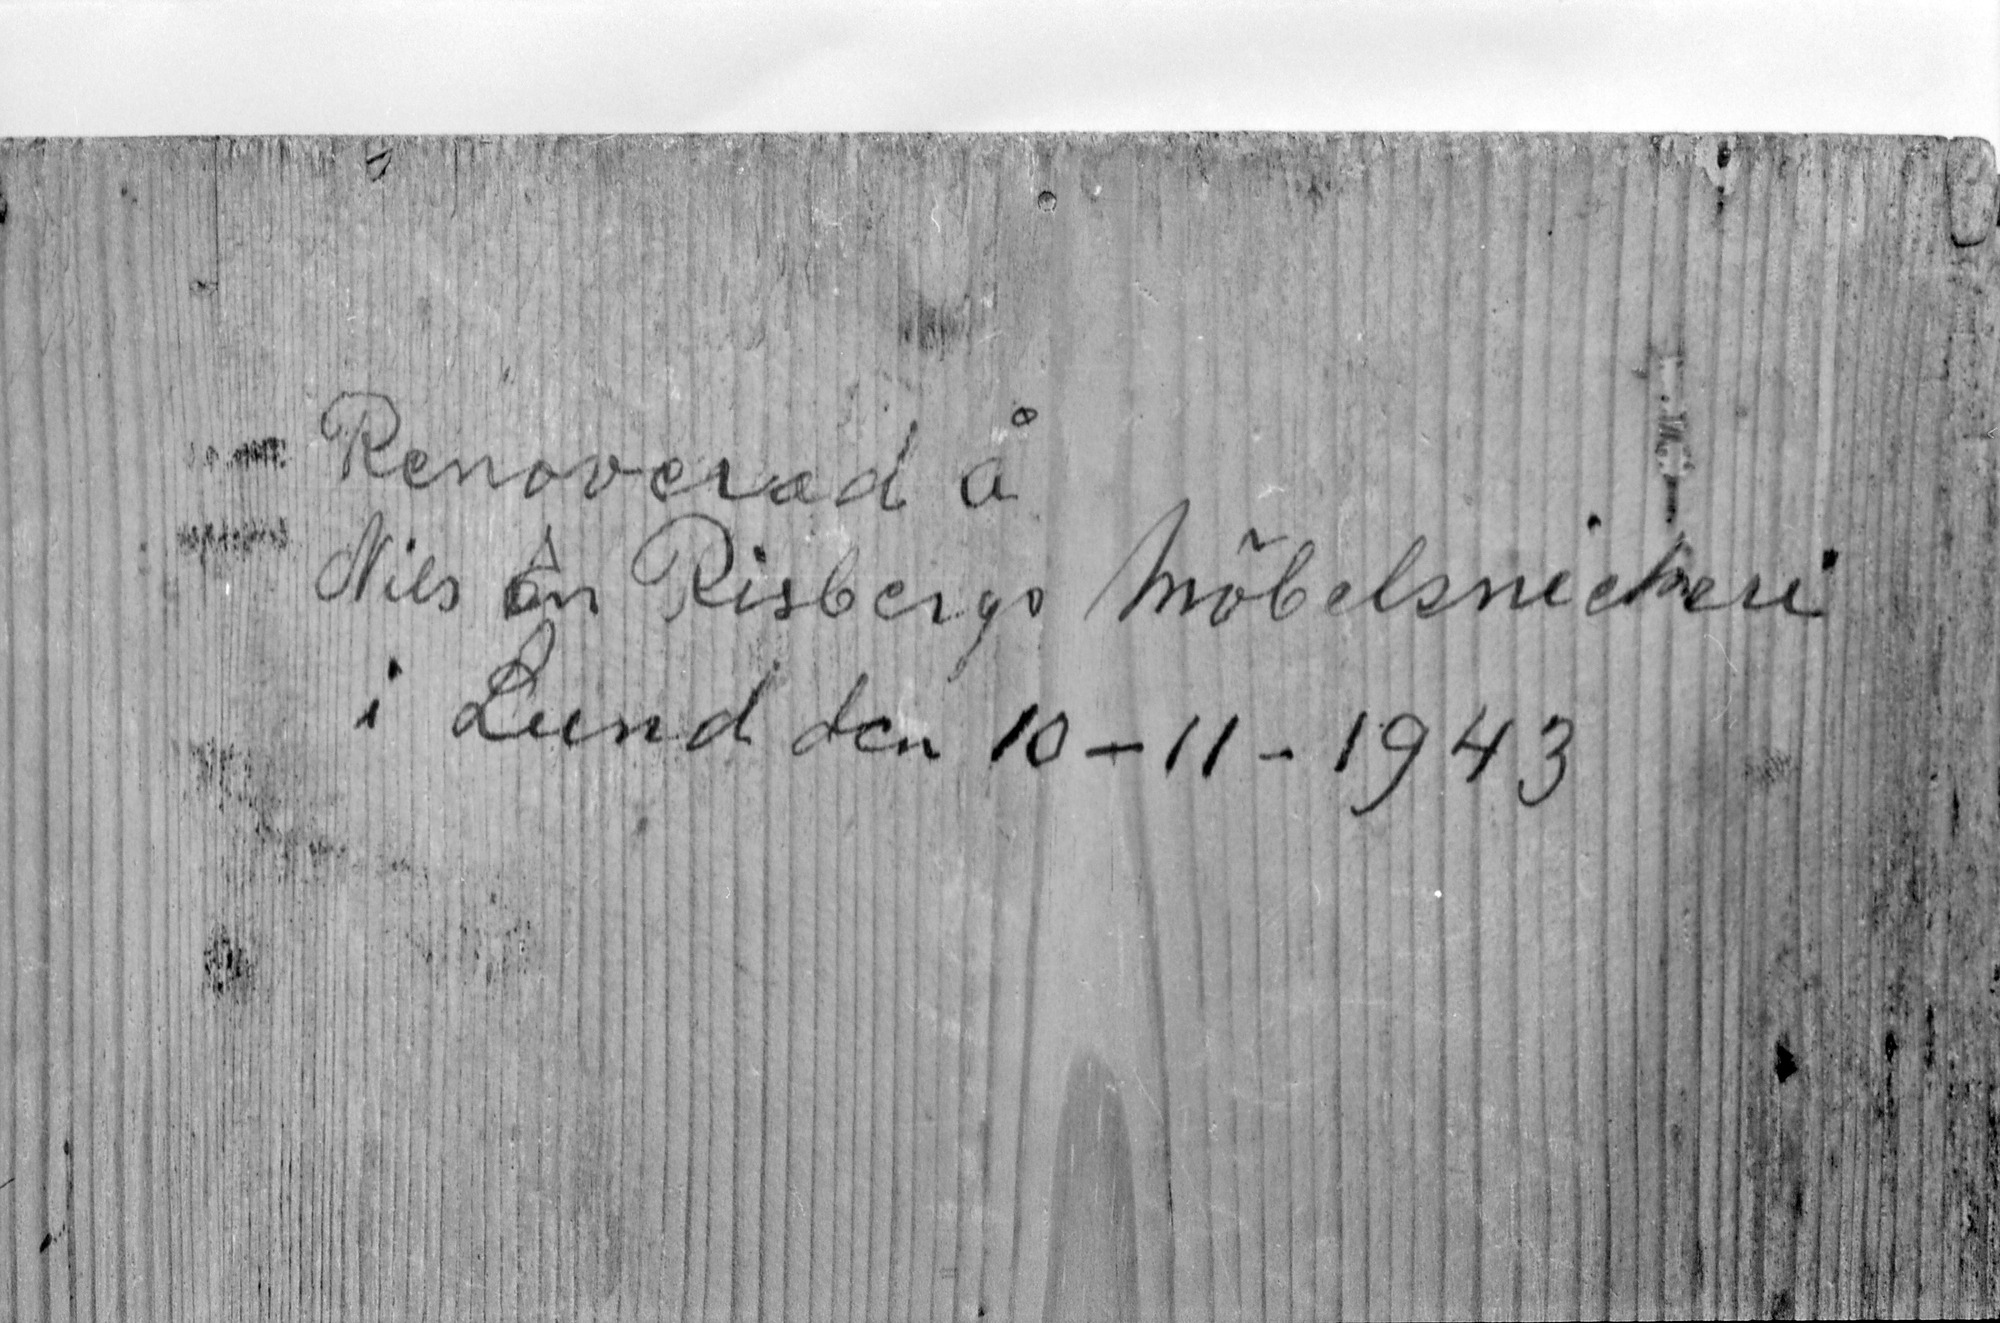 Renoverad å
Nils Risbergs Möbelsnickeri
i Lund den 10-11-1943